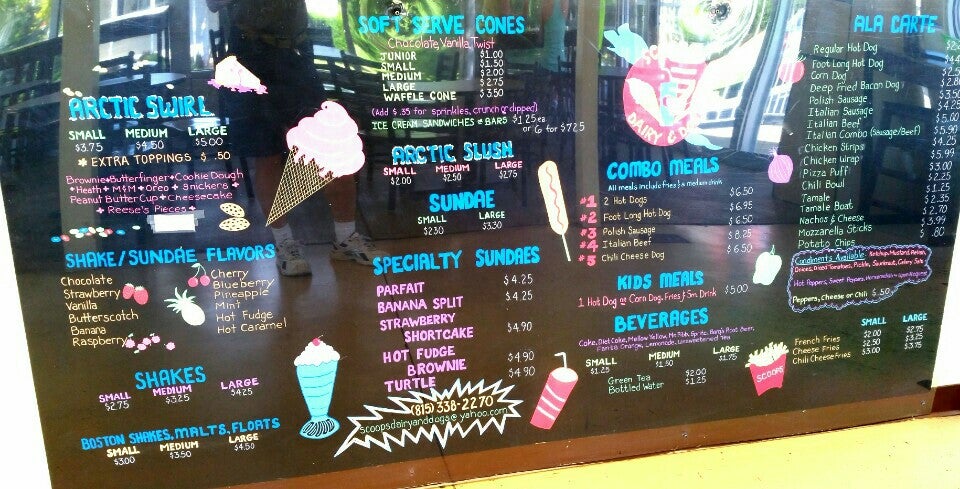 ARCTIC SWIRL
SMALL MEDIUM LARGE
$3.75 $4.50 $5.00
* EXTRA TOPPINGS $ .50
Brownie * Butterfinger * Cookie Dough
* Heath * M&M * Oreo * Snickers *
Peanut Butter Cup * Cheesecake
* Reese's Pieces *
SHAKE/SUNDAE FLAVORS
Chocolate
Strawberry
Vanilla
Butterscotch
Banana
Raspberry
Cherry
Blueberry
Pineapple
Mint
Hot Fudge
Hot Caramel
SHAKES
SMALL MEDIUM LARGE
$2.75 $3.25 $4.25
BOSTON SHAKES, MALTS, FLOATS
SMALL MEDIUM LARGE
$3.00 $3.50 $4.50
SOFT SERVE CONES
Chocolate, Vanilla, Twist
JUNIOR $1.00
SMALL $1.50
MEDIUM $2.00
LARGE $2.75
WAFFLE CONE $3.50
(Add $.35 for sprinkles, crunch or dipped)
ICE CREAM SANDWICHES & BARS $1.25 ea
or 6 for $7.25
ARCTIC SLUSH
SMALL MEDIUM LARGE
$2.00 $2.50 $2.75
SUNDAE
SMALL LARGE
$2.30 $3.30
SPECIALTY SUNDAES
PARFAIT $4.25
BANANA SPLIT $4.25
STRAWBERRY
SHORTCAKE $4.90
HOT FUDGE
BROWNIE $4.90
TURTLE $4.90
(815) 338-2270
scoopsdairyanddogs@yahoo.com
DAIRY & D
COMBO MEALS
All meals include fries & medium drink
#1 2 Hot Dogs $6.50
#2 Foot Long Hot Dog $6.95
#3 Polish Sausage $6.50
#4 Italian Beef $8.25
#5 Chili Cheese Dog $6.50
KIDS MEALS
1 Hot Dog or Corn Dog, Fries & Sm. Drink $5.00
BEVERAGES
Coke, Diet Coke, Mellow Yellow, Mr. Pibb, Sprite, Barq's Root Beer,
Fanta Orange, Lemonade, unsweetened Tea
SMALL MEDIUM LARGE
$1.25 $1.50 $1.75
Green Tea $2.00
Bottled Water $1.25
SCOOPS
ALA CARTE
Regular Hot Dog
Foot Long Hot Dog
Corn Dog
Deep Fried Bacon Dog
Polish Sausage
Italian Sausage
Italian Beef
Italian Combo (Sausage/Beef)
Chicken Strips
Chicken Wrap
Pizza Puff
Chili Bowl
Tamale
Tamale Boat
Nachos & Cheese
Mozzarella Sticks
Potato Chips
$5.90
$4.25
$5.99
$3.00
$2.25
$1.25
$2.35
$2.70
$3.99
$ .80
Condiments Available: Ketchup, Mustard, Relish,
Onions, Diced Tomatoes, Pickle, Sauerkraut, Celery Salt
Hot Peppers, Sweet Peppers,
Peppers, Cheese or Chili $ .50
SMALL LARGE
French Fries $2.00 $2.75
Cheese Fries $2.50 $3.25
Chili Cheese Fries $3.00 $3.75